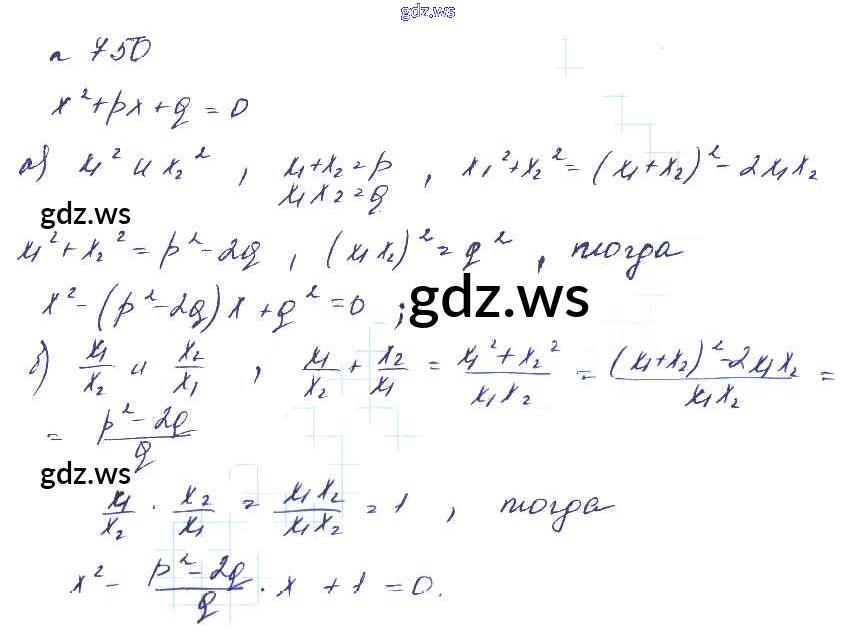 gdz.ws
n 750
x² + px + q = 0
а) x₁² и x₂² , x₁ + x₂ = p , x₁² + x₂² = (x₁ + x₂)² - 2x₁x₂
x₁x₂ = q
gdz.ws
x₁² + x₂² = p² - 2q , (x₁x₂)² = q² , тогда
x² - (p² - 2q)x + q² = 0 ; gdz.ws
б) x₁/x₂ и x₂/x₁ , x₁/x₂ + x₂/x₁ = (x₁² + x₂²)/(x₁x₂) = ((x₁ + x₂)² - 2x₁x₂)/(x₁x₂) =
= (p² - 2q)/q
gdz.ws
x₁/x₂ · x₂/x₁ = (x₁x₂)/(x₁x₂) = 1 , тогда
x² - (p² - 2q)/q · x + 1 = 0.